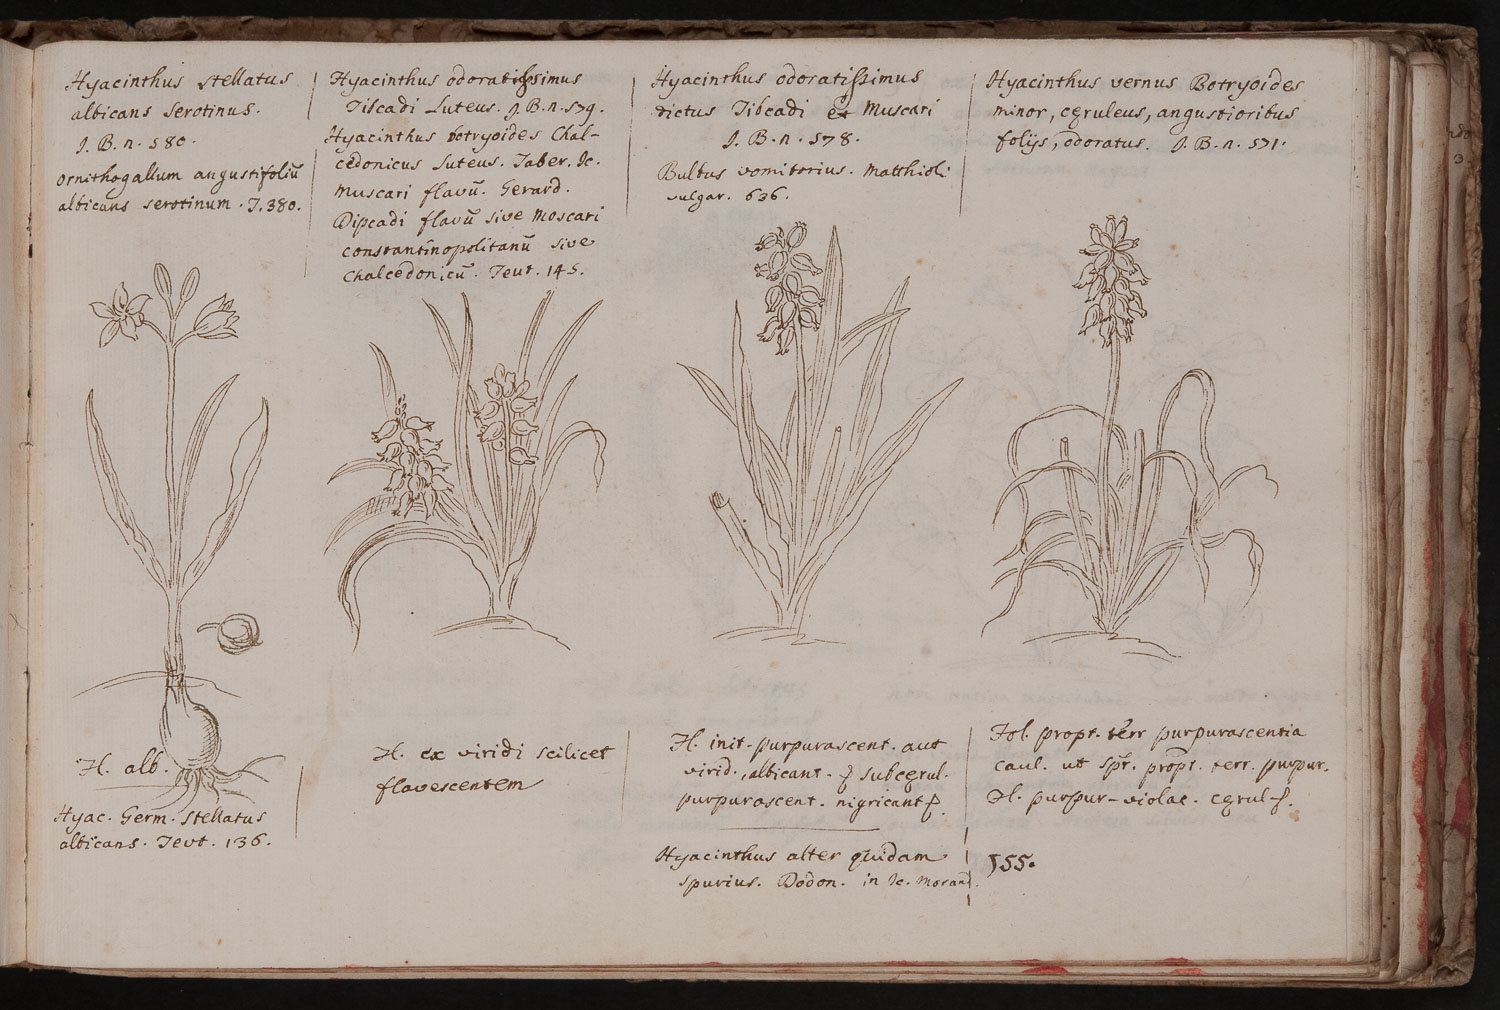 Hyacinthus stellatus
albicans serotinus.
J. B. n. 580.
ornithogallum angustifoliũ
albicans serotinum. T. 380.
Hyacinthus odoratissimus
Tibcadi Luteus. J. B. n. 579.
Hyacinthus botryoides Chal-
cedonicus luteus. Taber. Ic.
Muscari flavũ. Gerard.
Dipcadi flavũ sive Moscari
constantinopolitanũ sive
Chalcedonicũ. Teut. 145.
Hyacinthus odoratissimus
dictus Tibcadi et Muscari
J. B. n. 578.
Bulbus vomitorius. Matthioli
vulgar. 636.
Hyacinthus vernus Botryoides
minor, cęruleus, angustioribus
folijs, odoratus. J. B. n. 571.
Fl. alb.
Hyac. Germ. stellatus
albicans. Teut. 136.
Fl. ex viridi scilicet
flavescentem
Fl. init. purpurascent. aut
virid., albicant. subcęrul.
purpurascent. nigricant
Hyacinthus alter quidam
spurius. Dodon. in Ic. Morand.
Fol. propt. terr purpurascentia
caul. ut spr. propt. terr. purpur.
Fl. purpur-violac. cęrul
155.